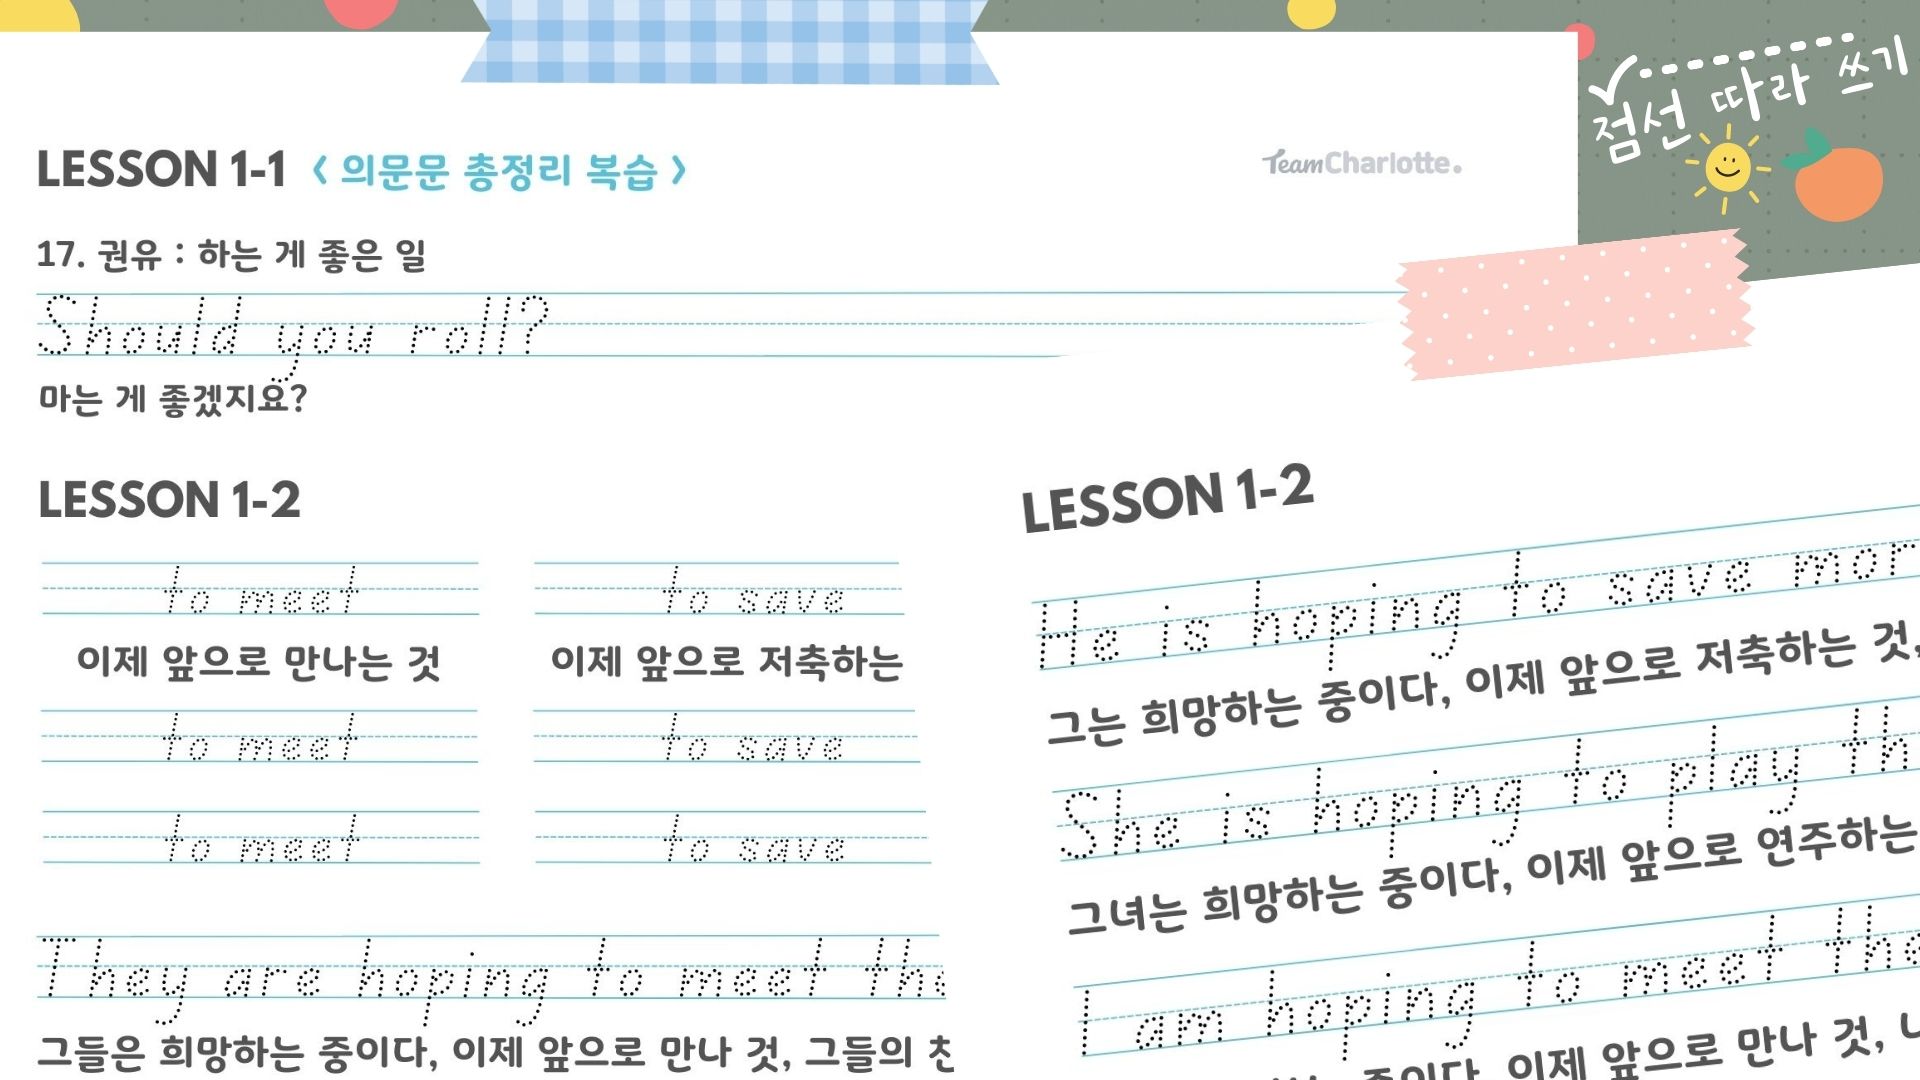 점선 따라 쓰기
LESSON 1-1 < 의문문 총정리 복습 >
TeamCharlotte.
17. 권유 : 하는 게 좋은 일
Should you roll?
마는 게 좋겠지요?
LESSON 1-2
to meet
to save
이제 앞으로 만나는 것
이제 앞으로 저축하는
to meet
to save
to meet
to save
They are hoping to meet
그들은 희망하는 중이다, 이제 앞으로 만나 것, 그들의
LESSON 1-2
He is hoping to save
그는 희망하는 중이다, 이제 앞으로 저축하는 것,
She is hoping to play
그녀는 희망하는 중이다, 이제 앞으로 연주하는
I am hoping to meet
중이다, 이제 앞으로 만나 것,